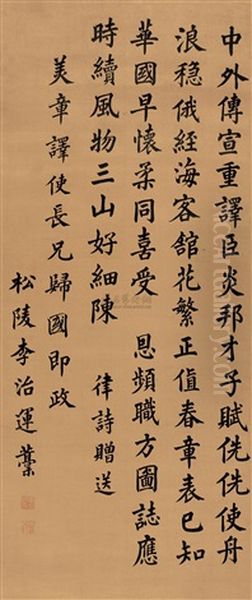 中外傳宣重譯臣炎邦才子賦侁侁使舟
浪穩俄經海客舘花繁正值春章表已知
華國早懷柔同喜受 恩頻職方圖誌應
時續風物三山好細陳 律詩贈送
美章譯使長兄歸國即政
松陵李治運藁